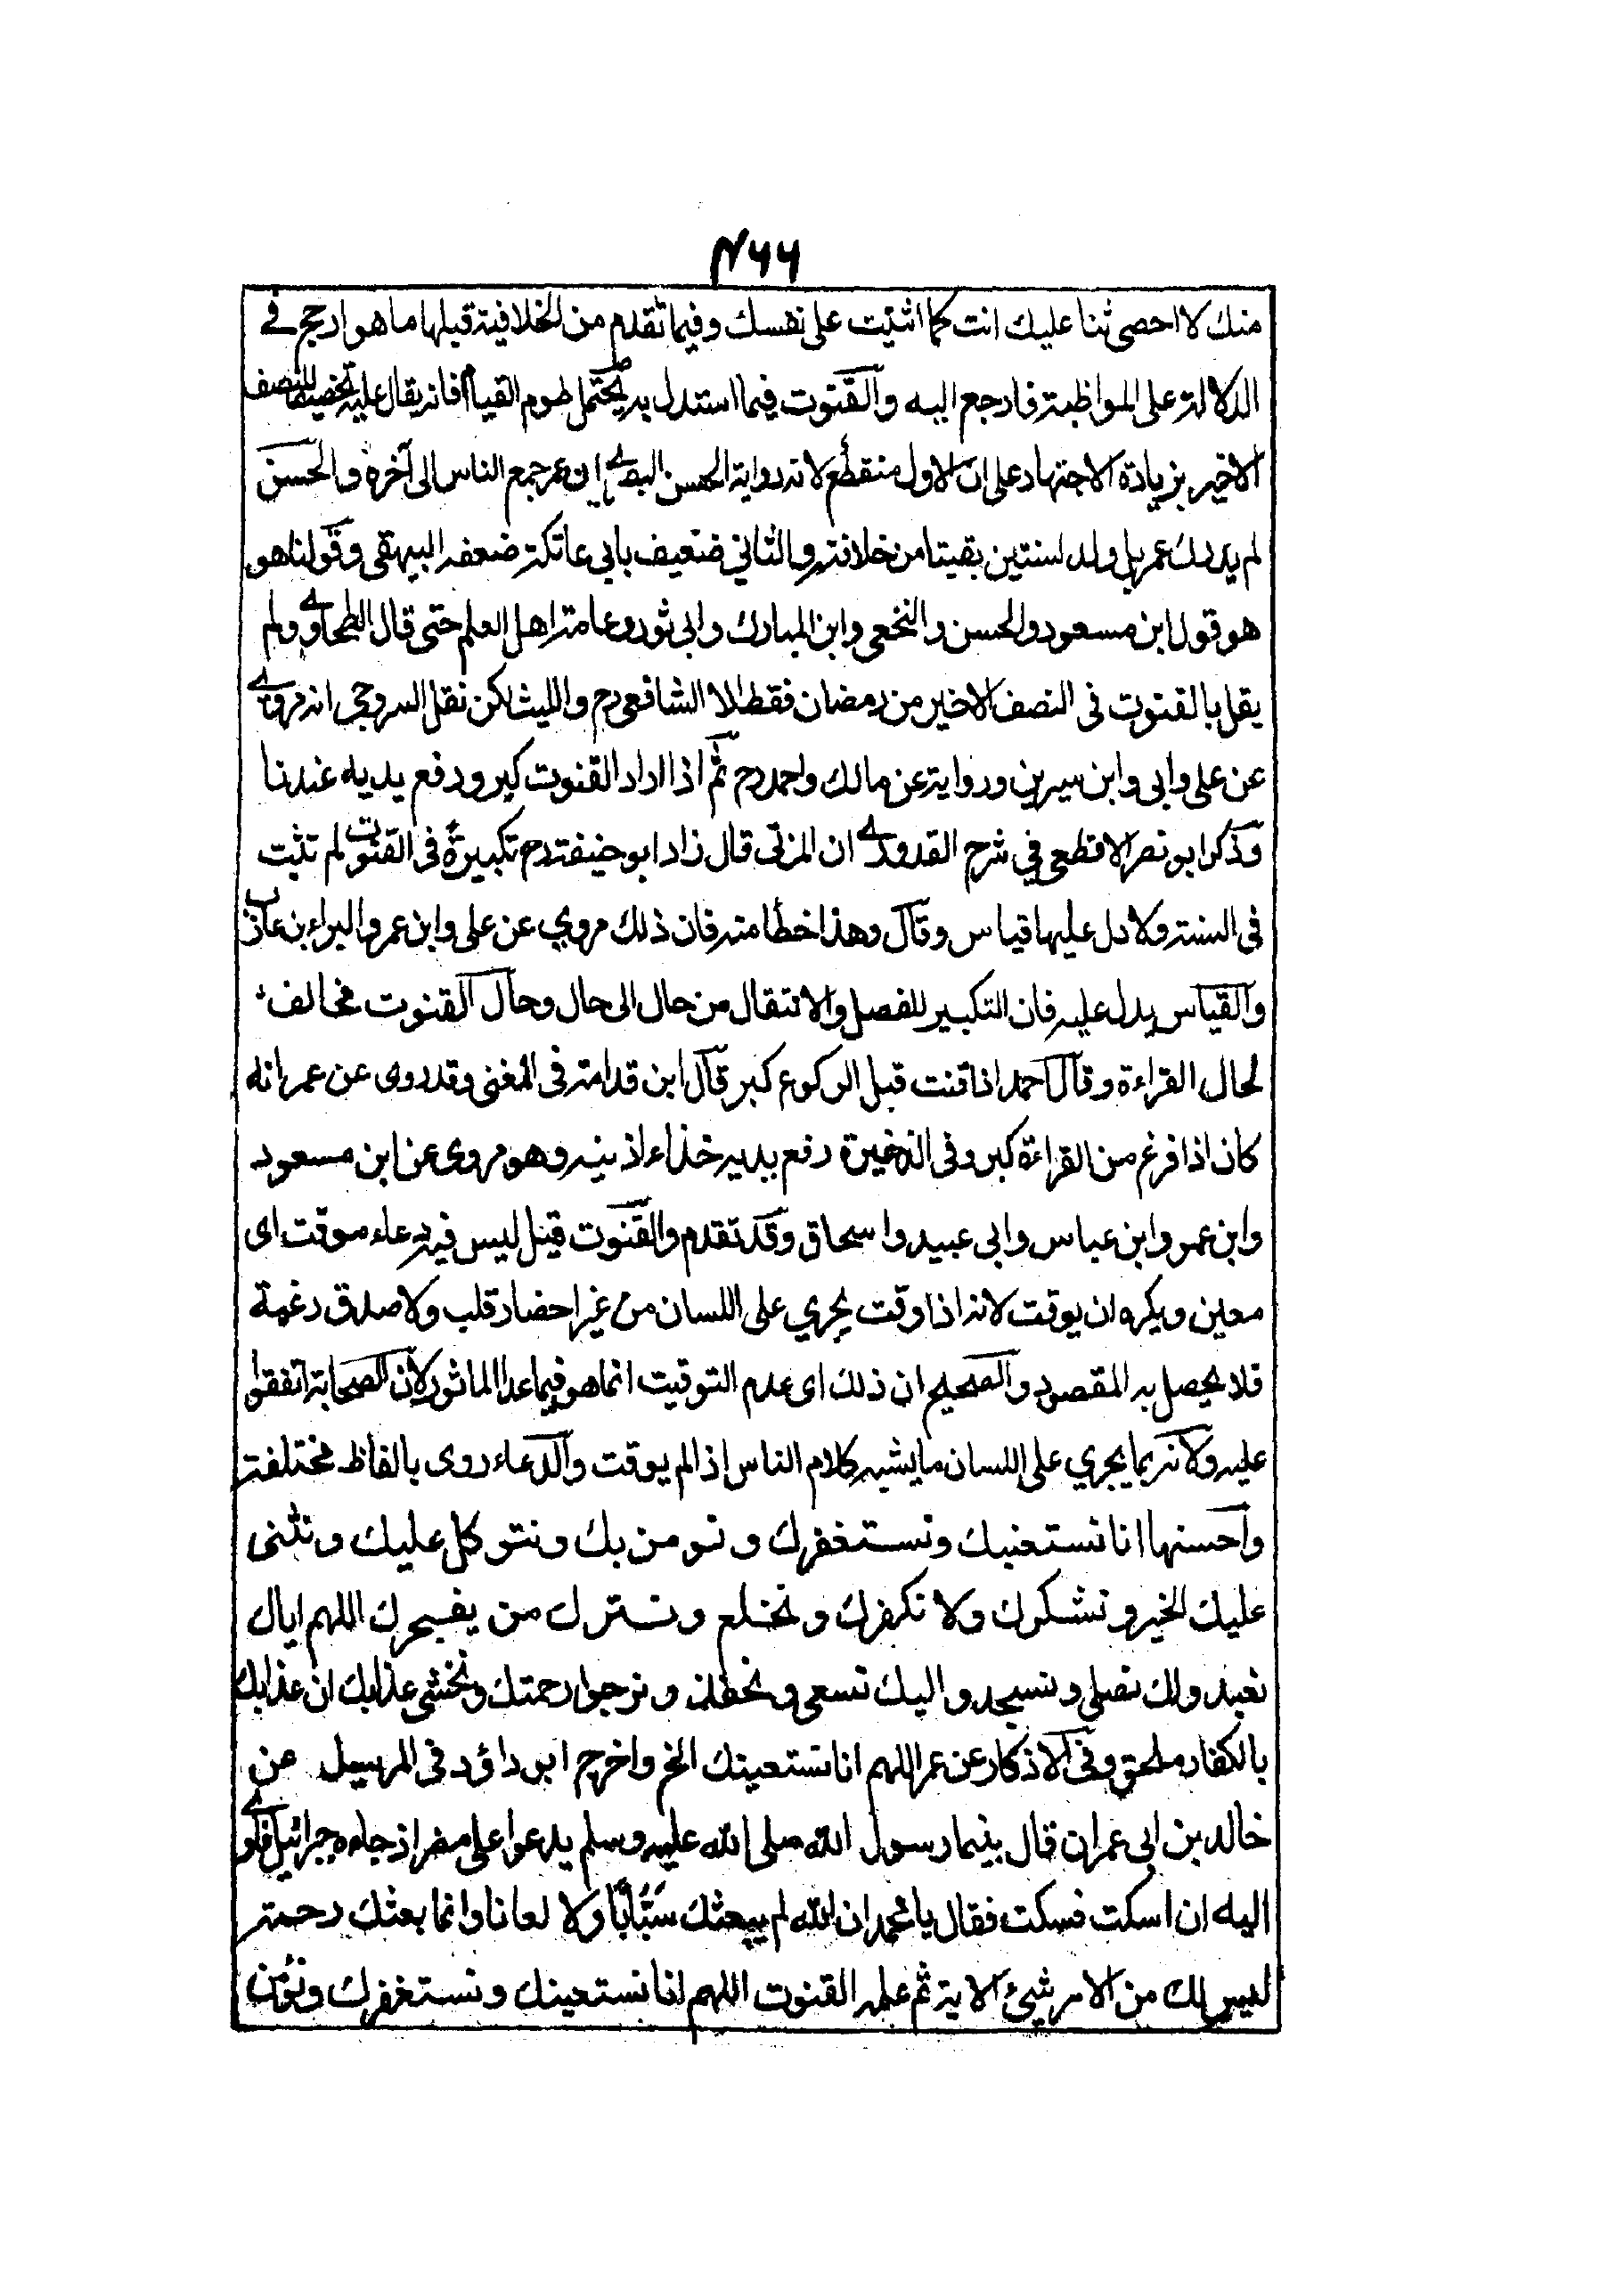 ٤٦٦
منك لا احصى ثنا عليك انت كما اثنيت على نفسك وفيما تقدم من الخلافية قبلها ما هو ارجح في
الدلالة على المواظبة فارجع اليه والقنوت فيما استدل به يحتمل طوم القيام فانه يقال عليه تخصيصا للنصف
الاخير بزيادة الاجتهاد على ان الاول منقطع لانه رواية الحسن البصري ان عمر جمع الناس الى آخره والحسن
لم يدرك عمر بل ولد لسنتين بقيتا من خلافته والثاني ضعيف بابي عاتكة ضعفه البيهقي وقولنا هو
هو قول ابن مسعود والحسن والنخعي وابن المبارك وابي ثور وعامة اهل العلم حتى قال الطحاوي ولم
يقل بالقنوت في النصف الاخير من رمضان فقط الا الشافعي رح والليث لكن نقل السروجي انه مروي
عن علي وابي وابن سيرين ورواية عن مالك واحمد رح ثم اذا اراد القنوت كبر ورفع يديه عندنا
وذكر ابو نصر الاقطع في شرح القدوري ان المزني قال زاد ابو حنيفة رح تكبيرة في القنوت لم تثبت
في السنة ولا دل عليها قياس وقال وهذا خطأ منه فان ذلك مروي عن علي وابن عمر والبراء بن عازب
والقياس يدل عليه فان التكبير للفصل والانتقال من حال الى حال وحال القنوت مخالف
لحال القراءة وقال احمد اذا قنت قبل الركوع كبر قال ابن قدامة في المغني وقد روى عن عمر انه
كان اذا فرغ من القراءة كبر وفي الذخيرة رفع يديه حذاء اذنيه وهو مروى عن ابن مسعود
وابن عمر وابن عباس وابي عبيد واسحاق وقد تقدم والقنوت قيل ليس فيه دعاء موقت اى
معين ويكره ان يوقت لانه اذا وقت يجري على اللسان من غير احضار قلب ولا صدق رغبة
فلا يحصل به المقصود والصحيح ان ذلك اى عدم التوقيت انما هو فيما عدا الماثور لان الصحابة اتفقوا
عليه ولانه ربما يجري على اللسان ما يشبه كلام الناس اذا لم يوقت والدعاء روى بالفاظ مختلفة
واحسنها انا نستعينك ونستغفرك ونومن بك ونتوكل عليك ونثنى
عليك الخير ونشكرك ولا نكفرك ونخلع ونترك من يفجرك اللهم اياك
نعبد ولك نصلي ونسجد واليك نسعى ونحفد ونرجوا رحمتك ونخشى عذابك ان عذابك
بالكفار ملحق وفي الاذكار عن عمر اللهم انا نستعينك الخ واخرج ابو داؤد في المرسيل عن
خالد بن ابي عمران قال بينما رسول الله صلى الله عليه وسلم يدعوا على مضر اذ جاءه جبرائيل فاوى
اليه ان اسكت فسكت فقال يا محمد ان الله لم يبعثك سَبَّابًا ولا لعانا وانما بعثك رحمة
ليس لك من الامر شئ الاية ثم علمه القنوت اللهم انا نستعينك ونستغفرك ونؤمن